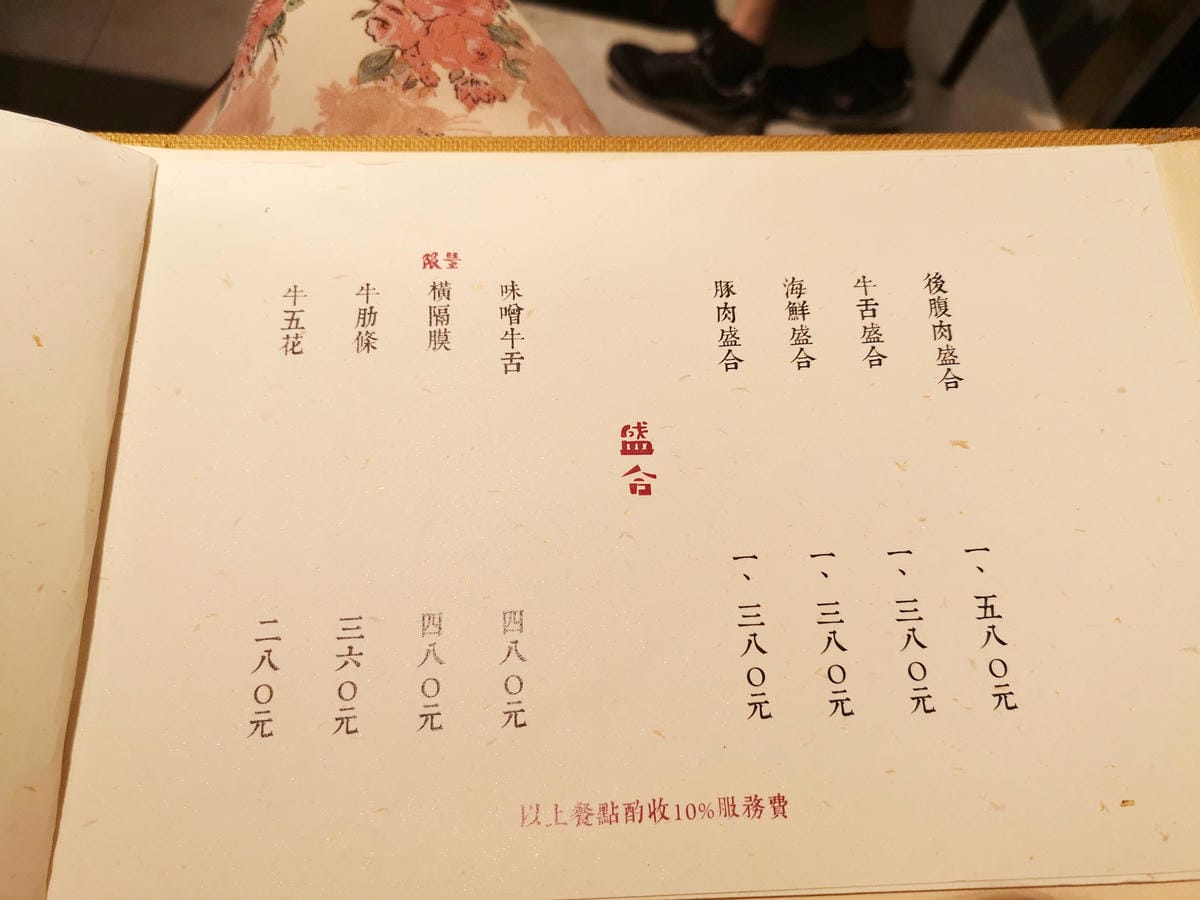 後腹肉盛合
一、五八〇元
牛舌盛合
一、三八〇元
海鮮盛合
一、三八〇元
豚肉盛合
一、三八〇元
盛合
味噌牛舌
四八〇元
限量
橫隔膜
四八〇元
牛肋條
三六〇元
牛五花
二八〇元
以上餐點酌收10%服務費